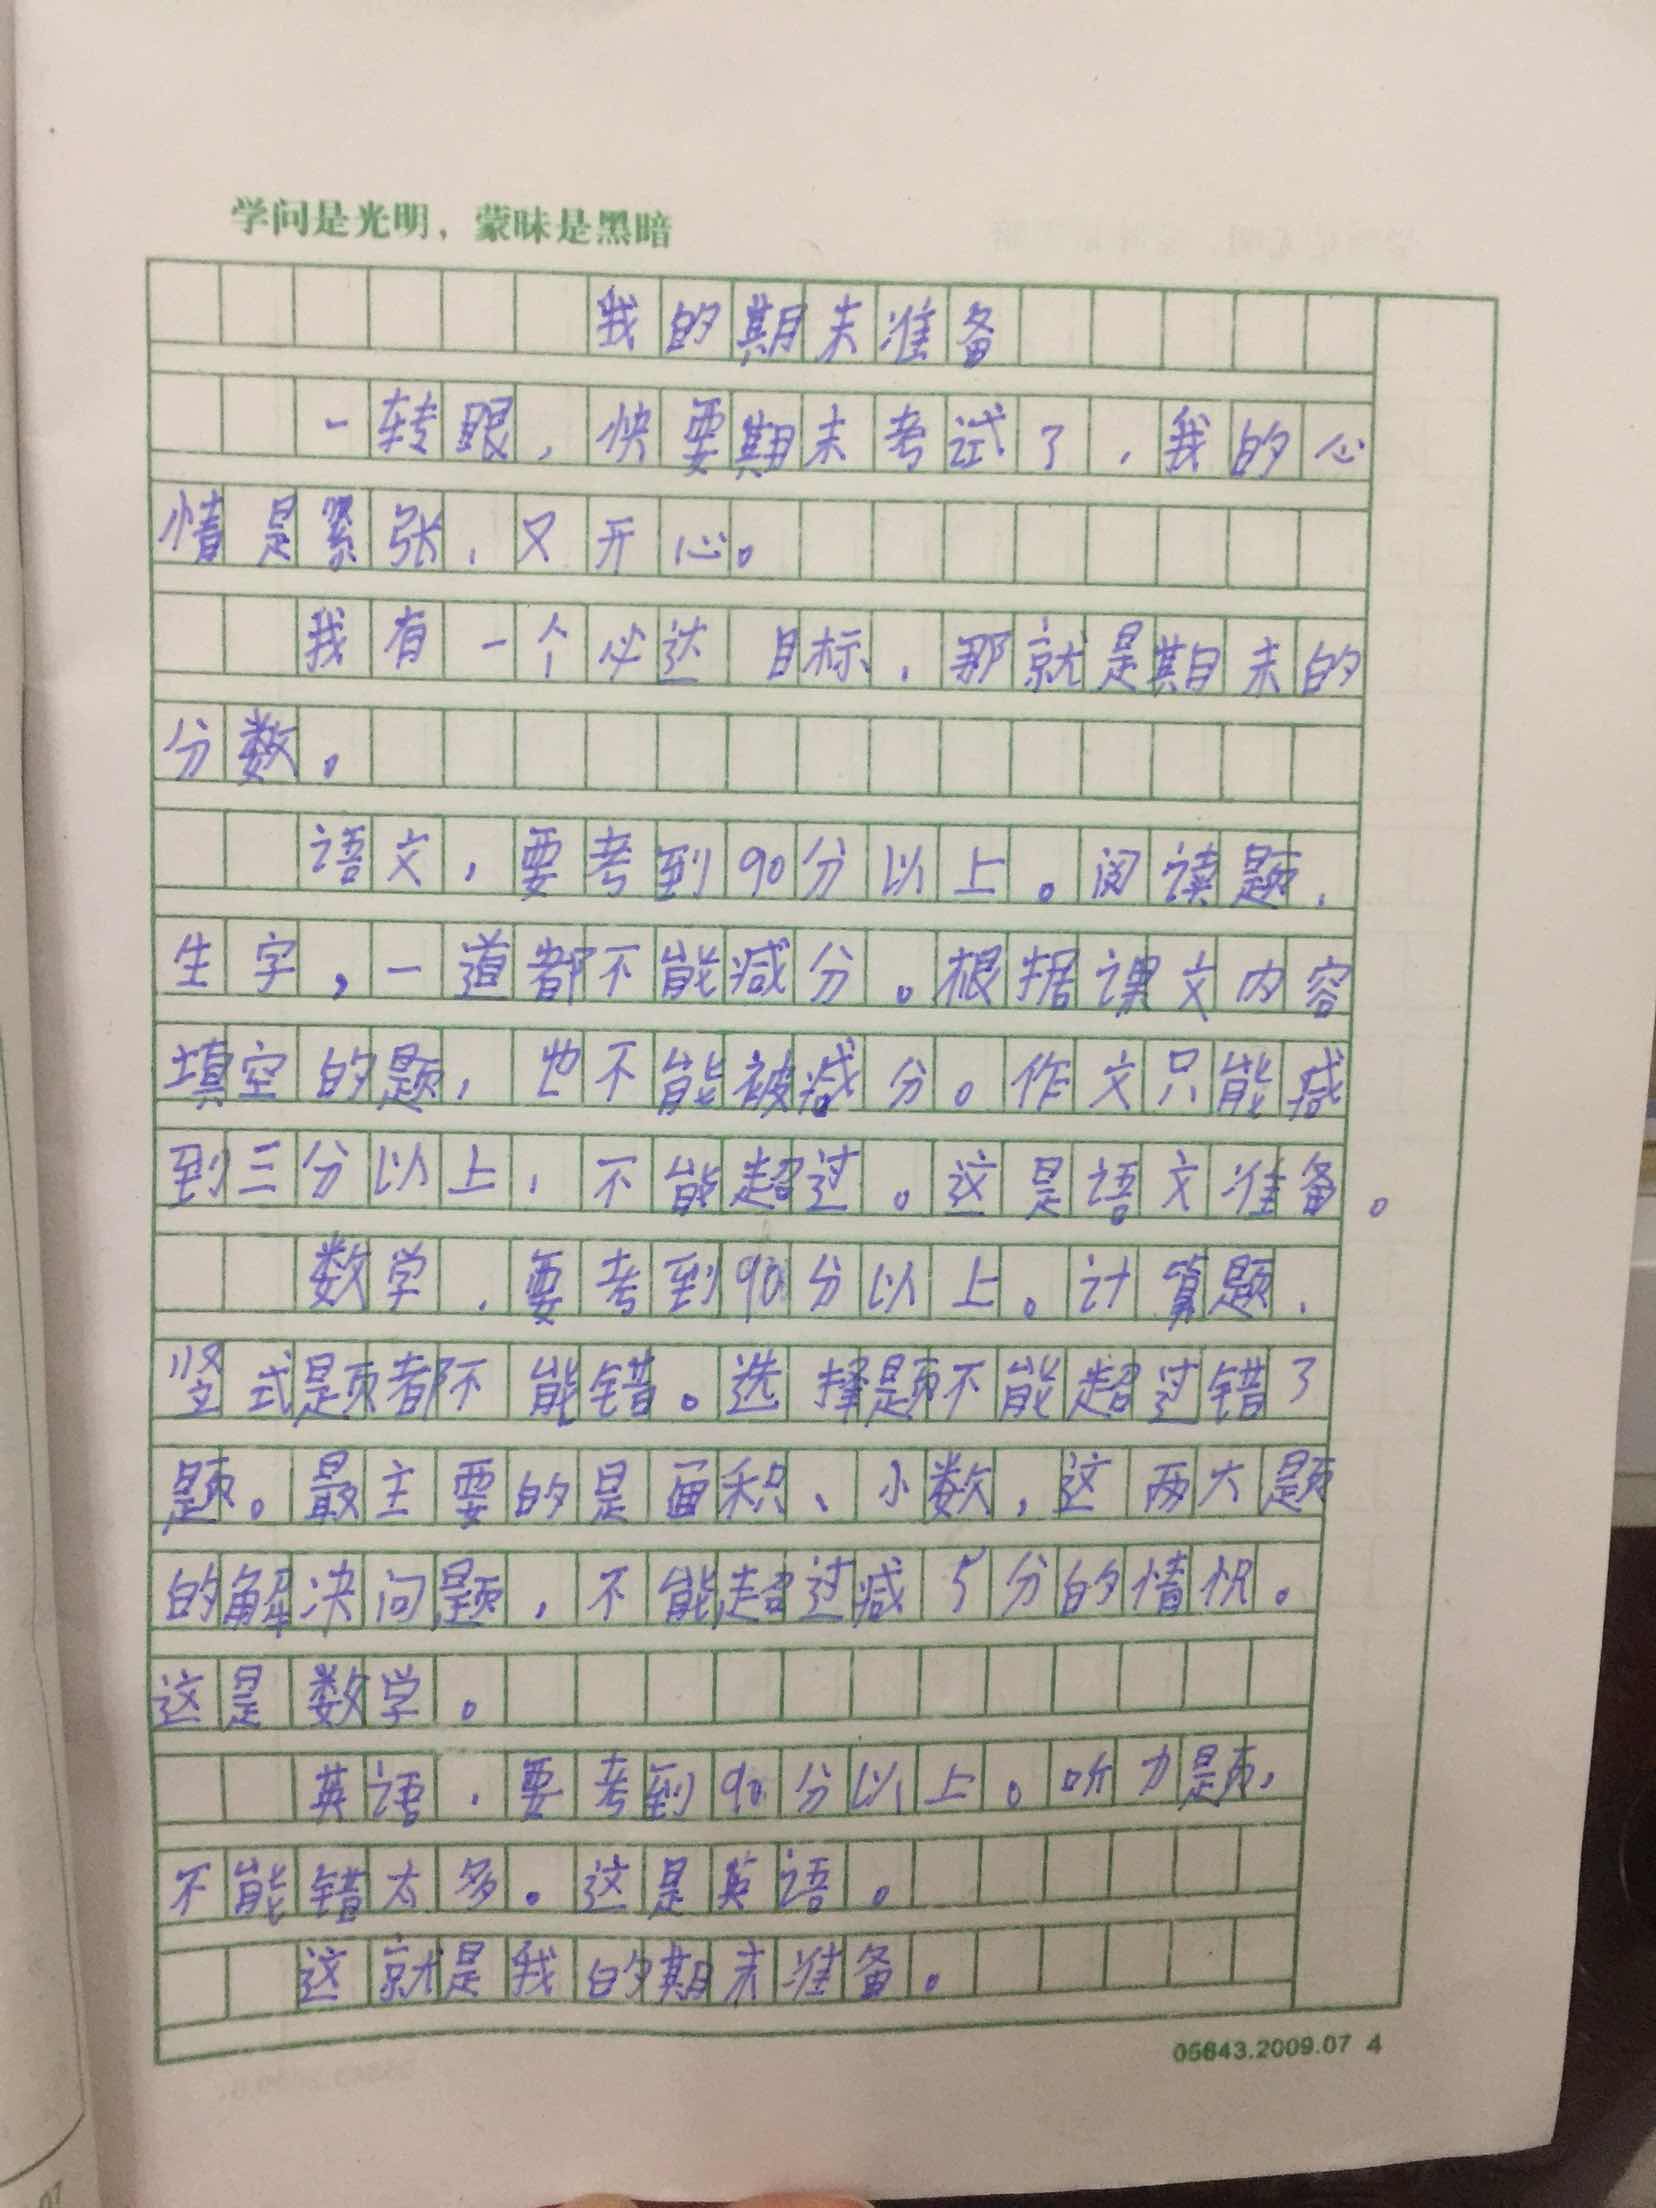 学问是光明，蒙昧是黑暗
我的期末准备
一转眼，快要期末考试了，我的心
情是紧张，又开心。
我有一个必达目标，那就是期末的
分数。
语文，要考到90分以上。阅读题，
生字，一道都不能减分。根据课文内容
填空的题，也不能被减分。作文只能减
到三分以上，不能超过。这是语文准备。
数学，要考到90分以上。计算题，
竖式题都不能错。选择题不能超过错了
题。最主要的是面积、小数，这两大题
的解决问题，不能超过减5分的情况。
这是数学。
英语，要考到90分以上。听力题，
不能错太多。这是英语。
这就是我的期末准备。
05643.2009.07 4